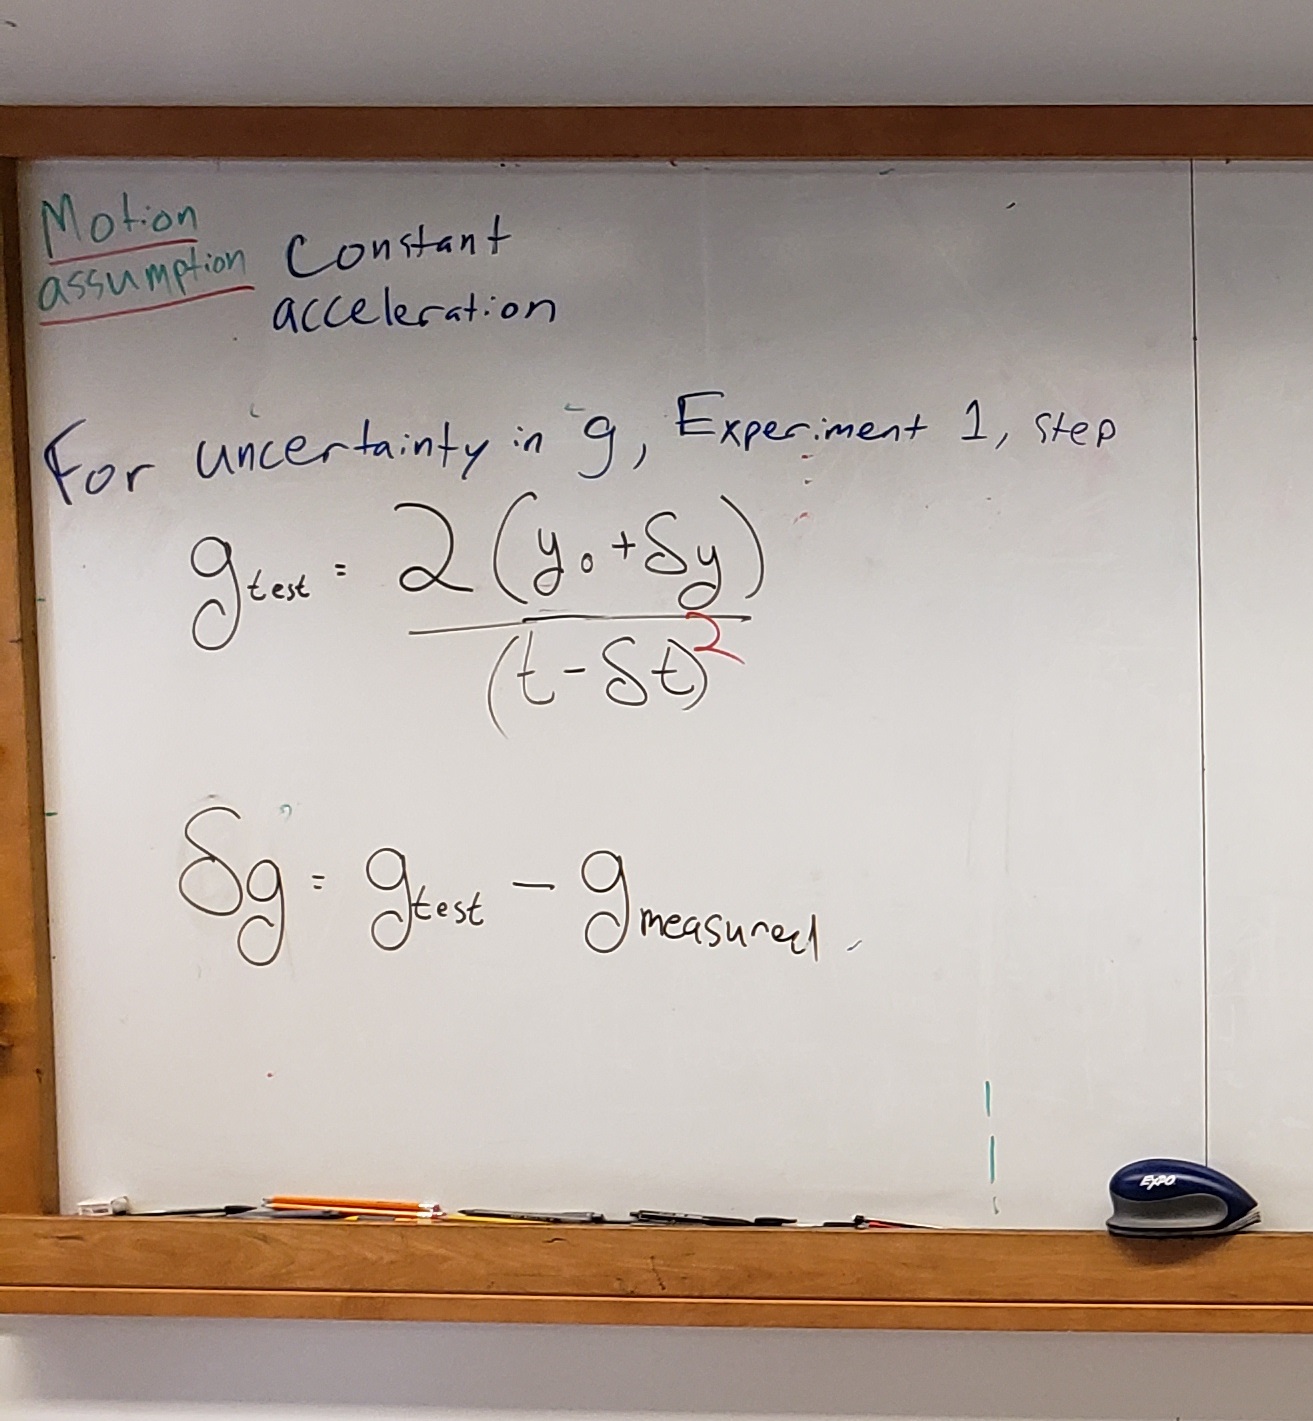 Motion
assumption
Constant
acceleration
For uncertainty in g, Experiment 1, step
g_test = 2(y₀+δy)
(t-δt)²
δg = g_test - g_measured
EXPO